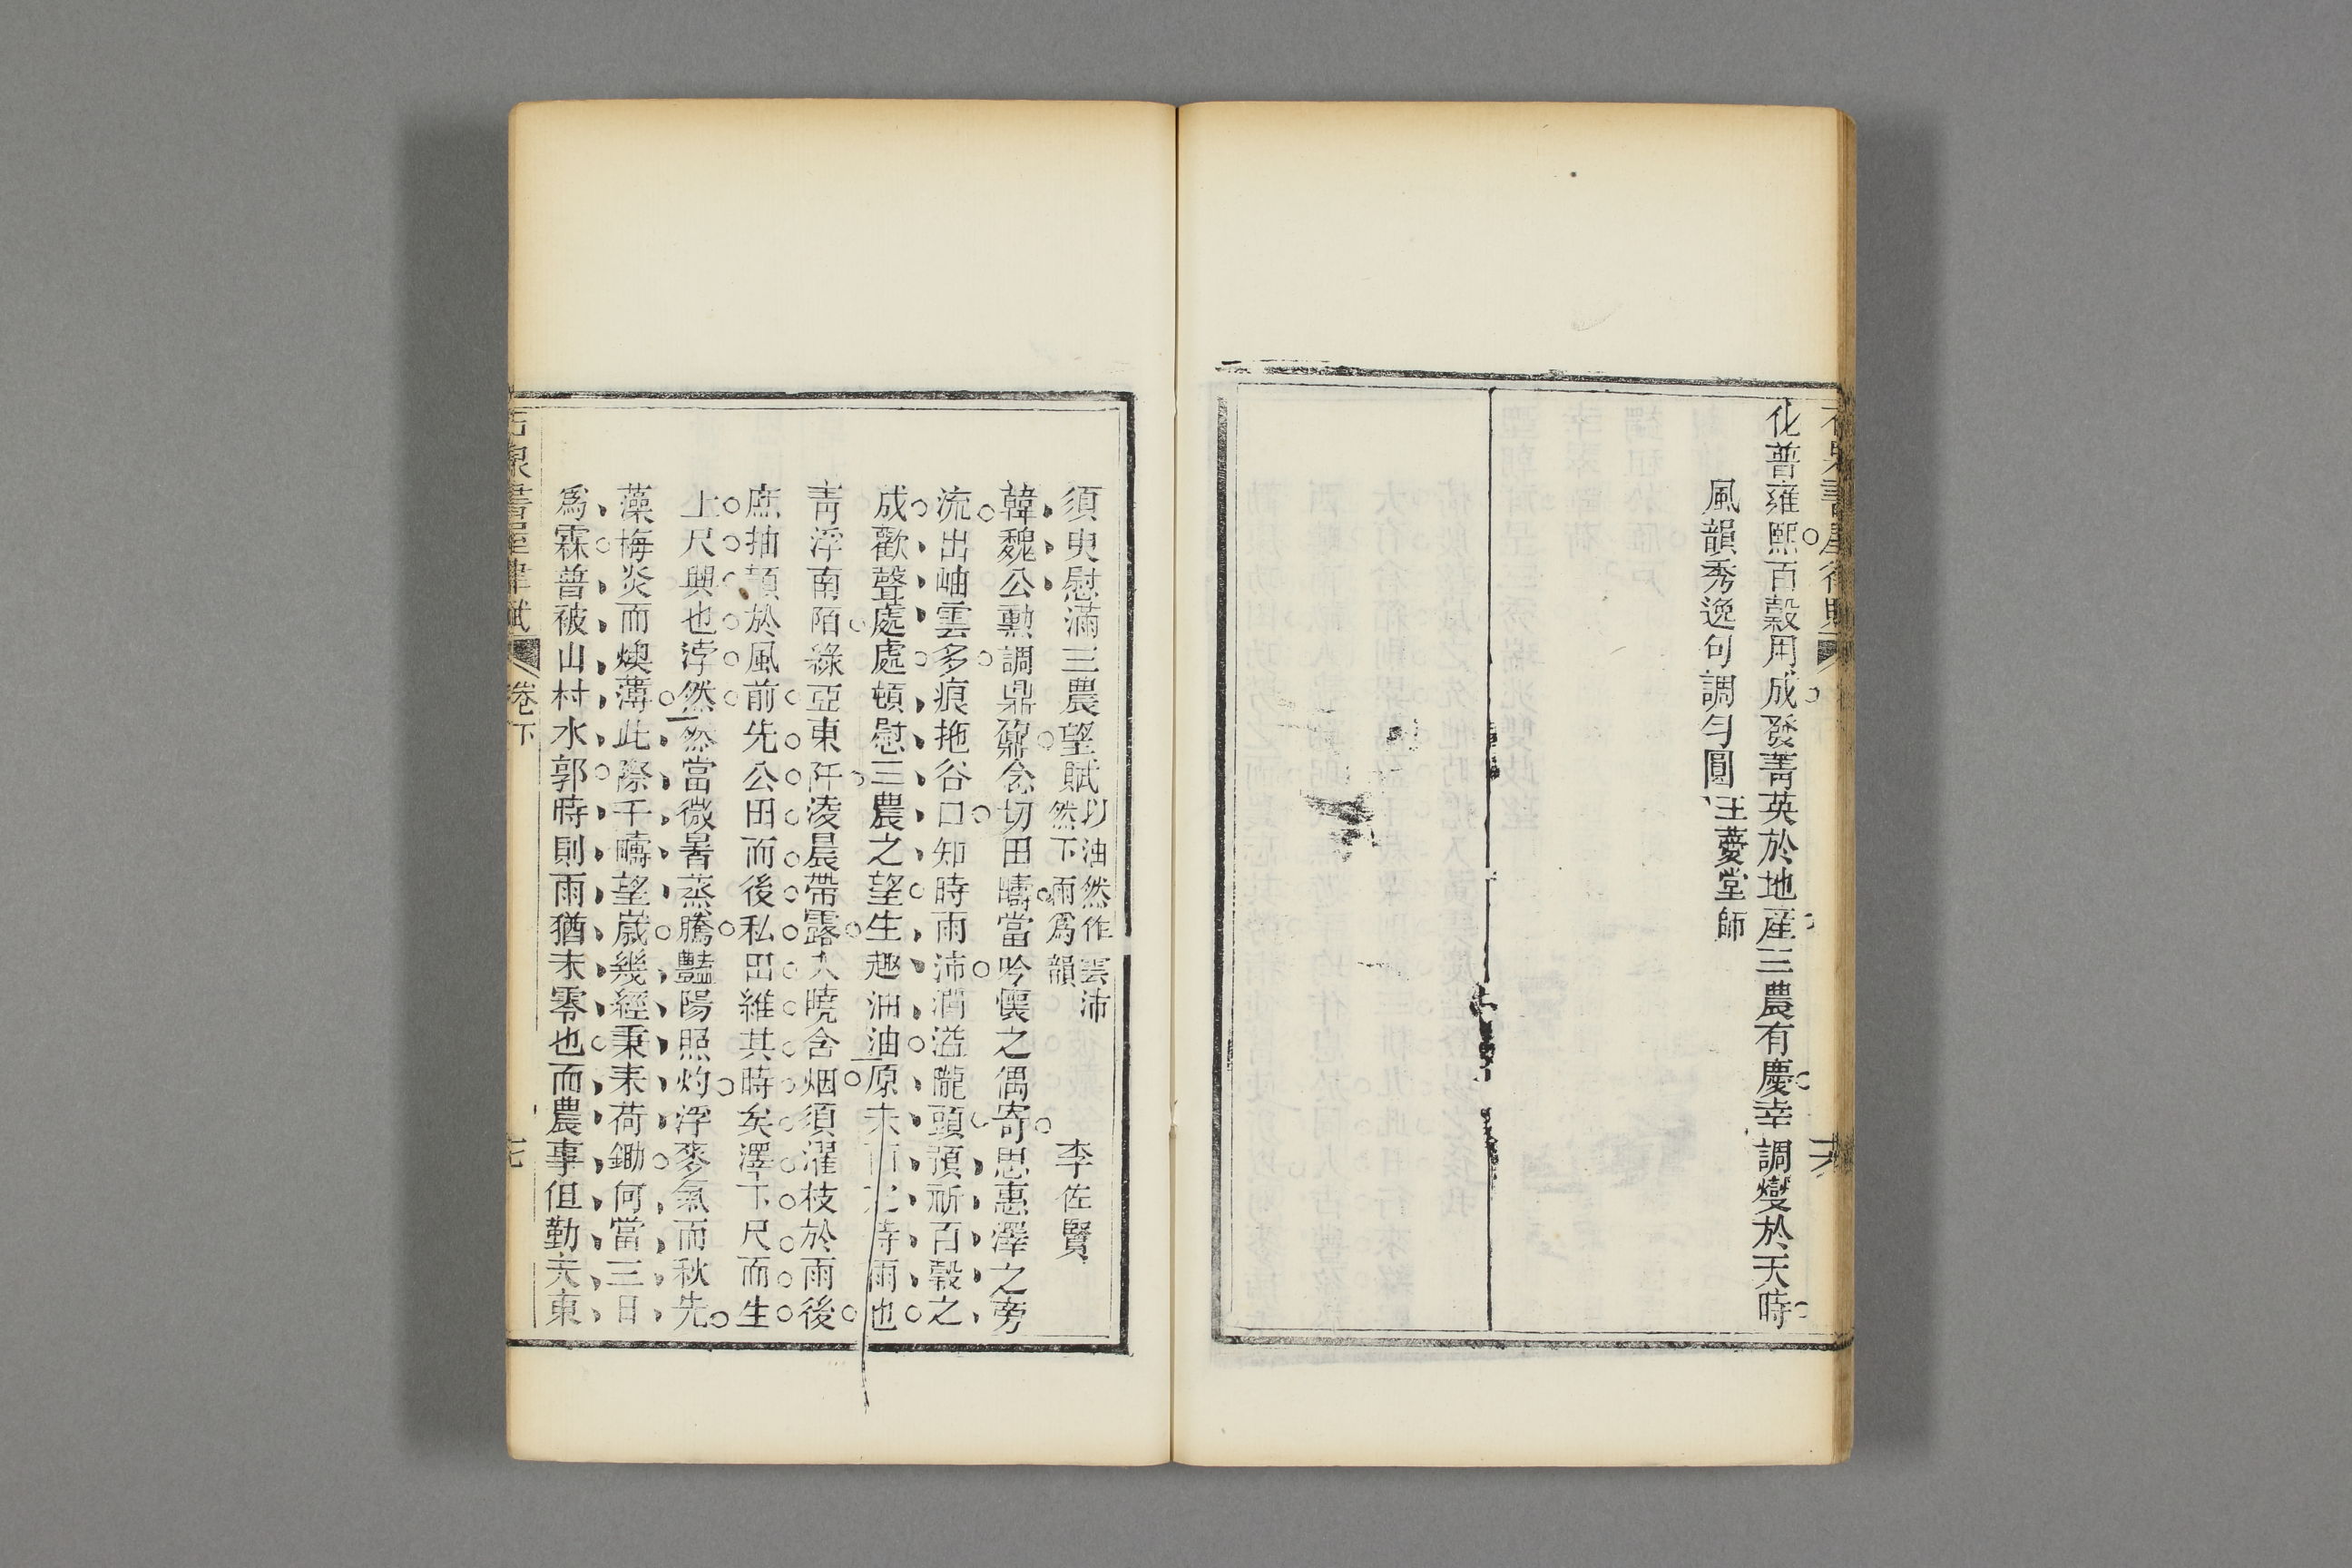 化普雍熙百穀用成發菁英於地産三農有慶幸調燮於天時
風韻秀逸句調勻圓王薆堂師
須臾慰滿三農望賦以油然作雲沛然下雨爲韻 李佐賢
韓魏公勳調鼎鼐念切田疇當吟懷之偶寄思惠澤之旁
流出岫雲多痕拖谷口知時雨沛潤溢隴頭預祈百穀之
成歡聲處處頓慰三農之望生趣油油原未雨之時雨也
靑浮南陌綠亞東阡淩晨帶露入曉含烟須濯枝於雨後
庶抽穎於風前先公田而後私田維其時矣澤下尺而生
上尺興也浡然然當微暑蒸騰豔陽照灼浮麥氣而秋先
藻梅炎而燠薄此際千疇望歲幾經秉耒荷鋤何當三日
爲霖普被山村水郭時則雨猶未零也而農事但勤夫東
石泉書屋律賦 卷下 七